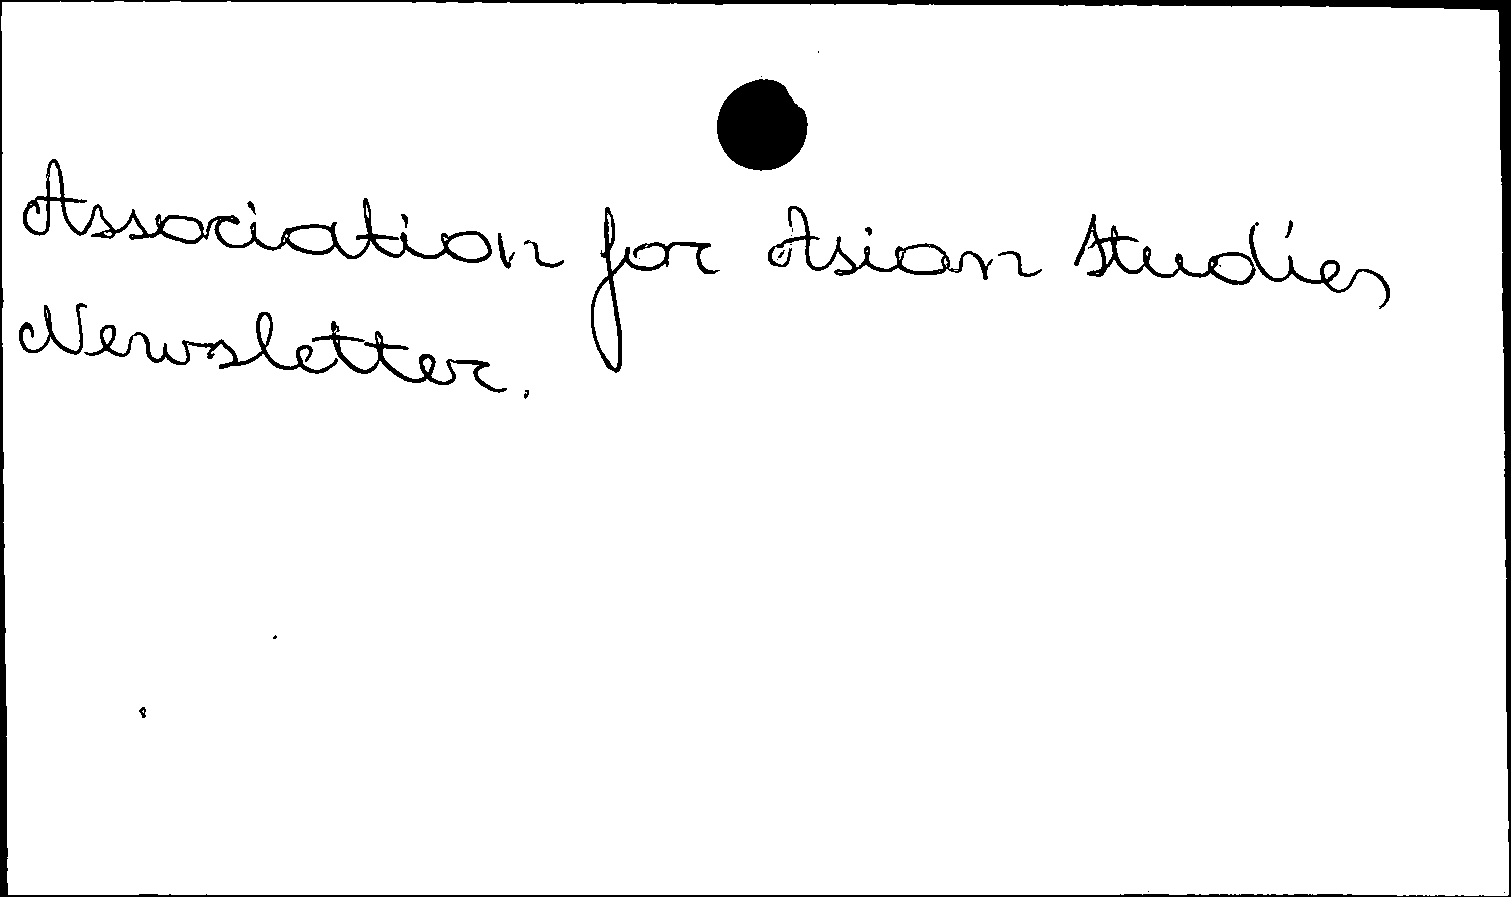 Association for Asian Studies
Newsletter.